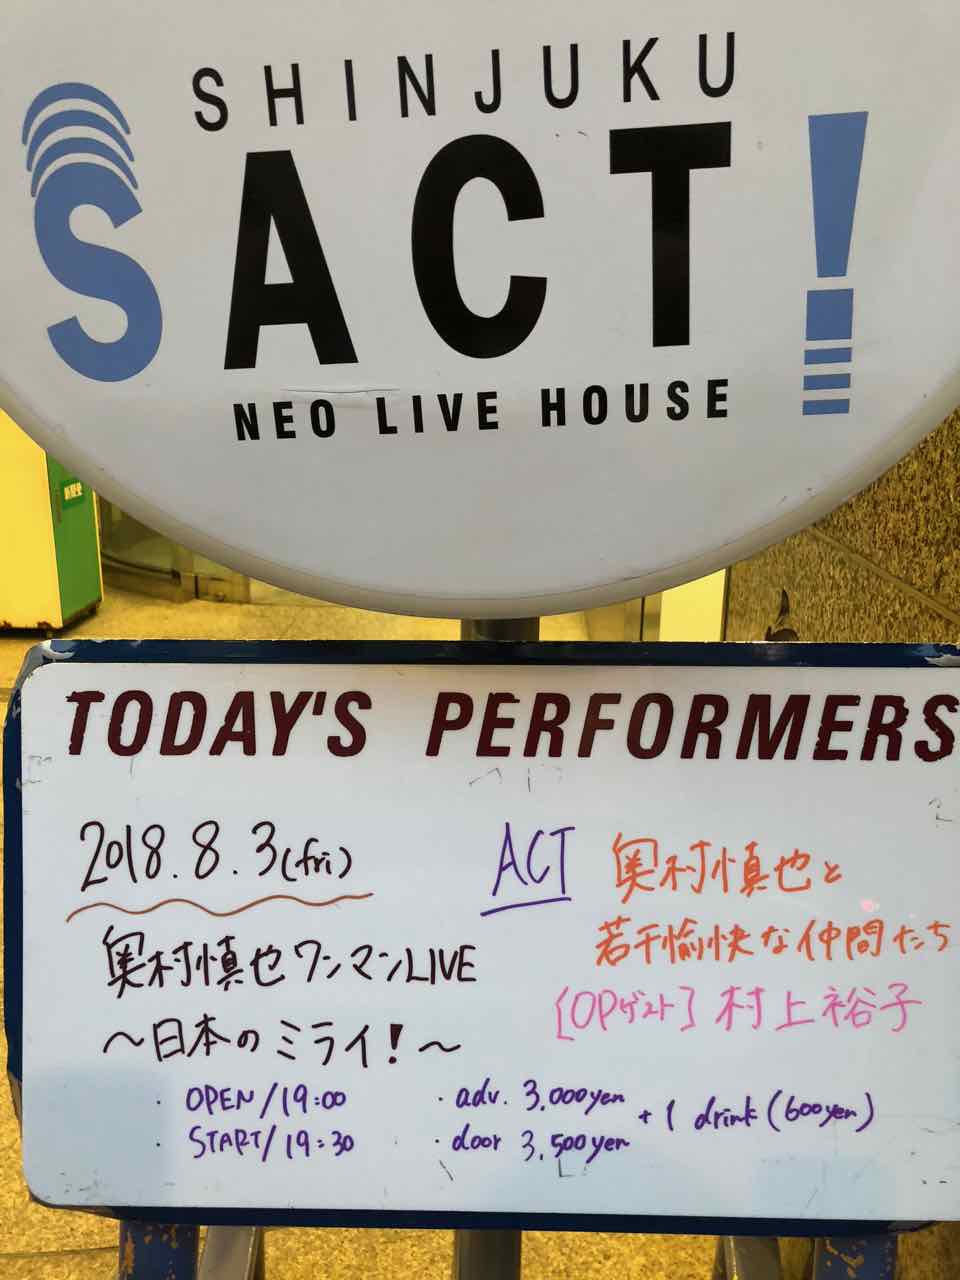 SHINJUKU
SACT!
NEO LIVE HOUSE
TODAY'S PERFORMERS
2018.8.3(fri)
奥村慎也ワンマンLIVE
～日本のミライ！～
・OPEN/19:00
・START/19:30
・adv. 3.000yen
・door 3,500yen
+1 drink (600yen)
ACT
奥村慎也と
若干愉快な仲間たち
[OPゲスト] 村上裕子